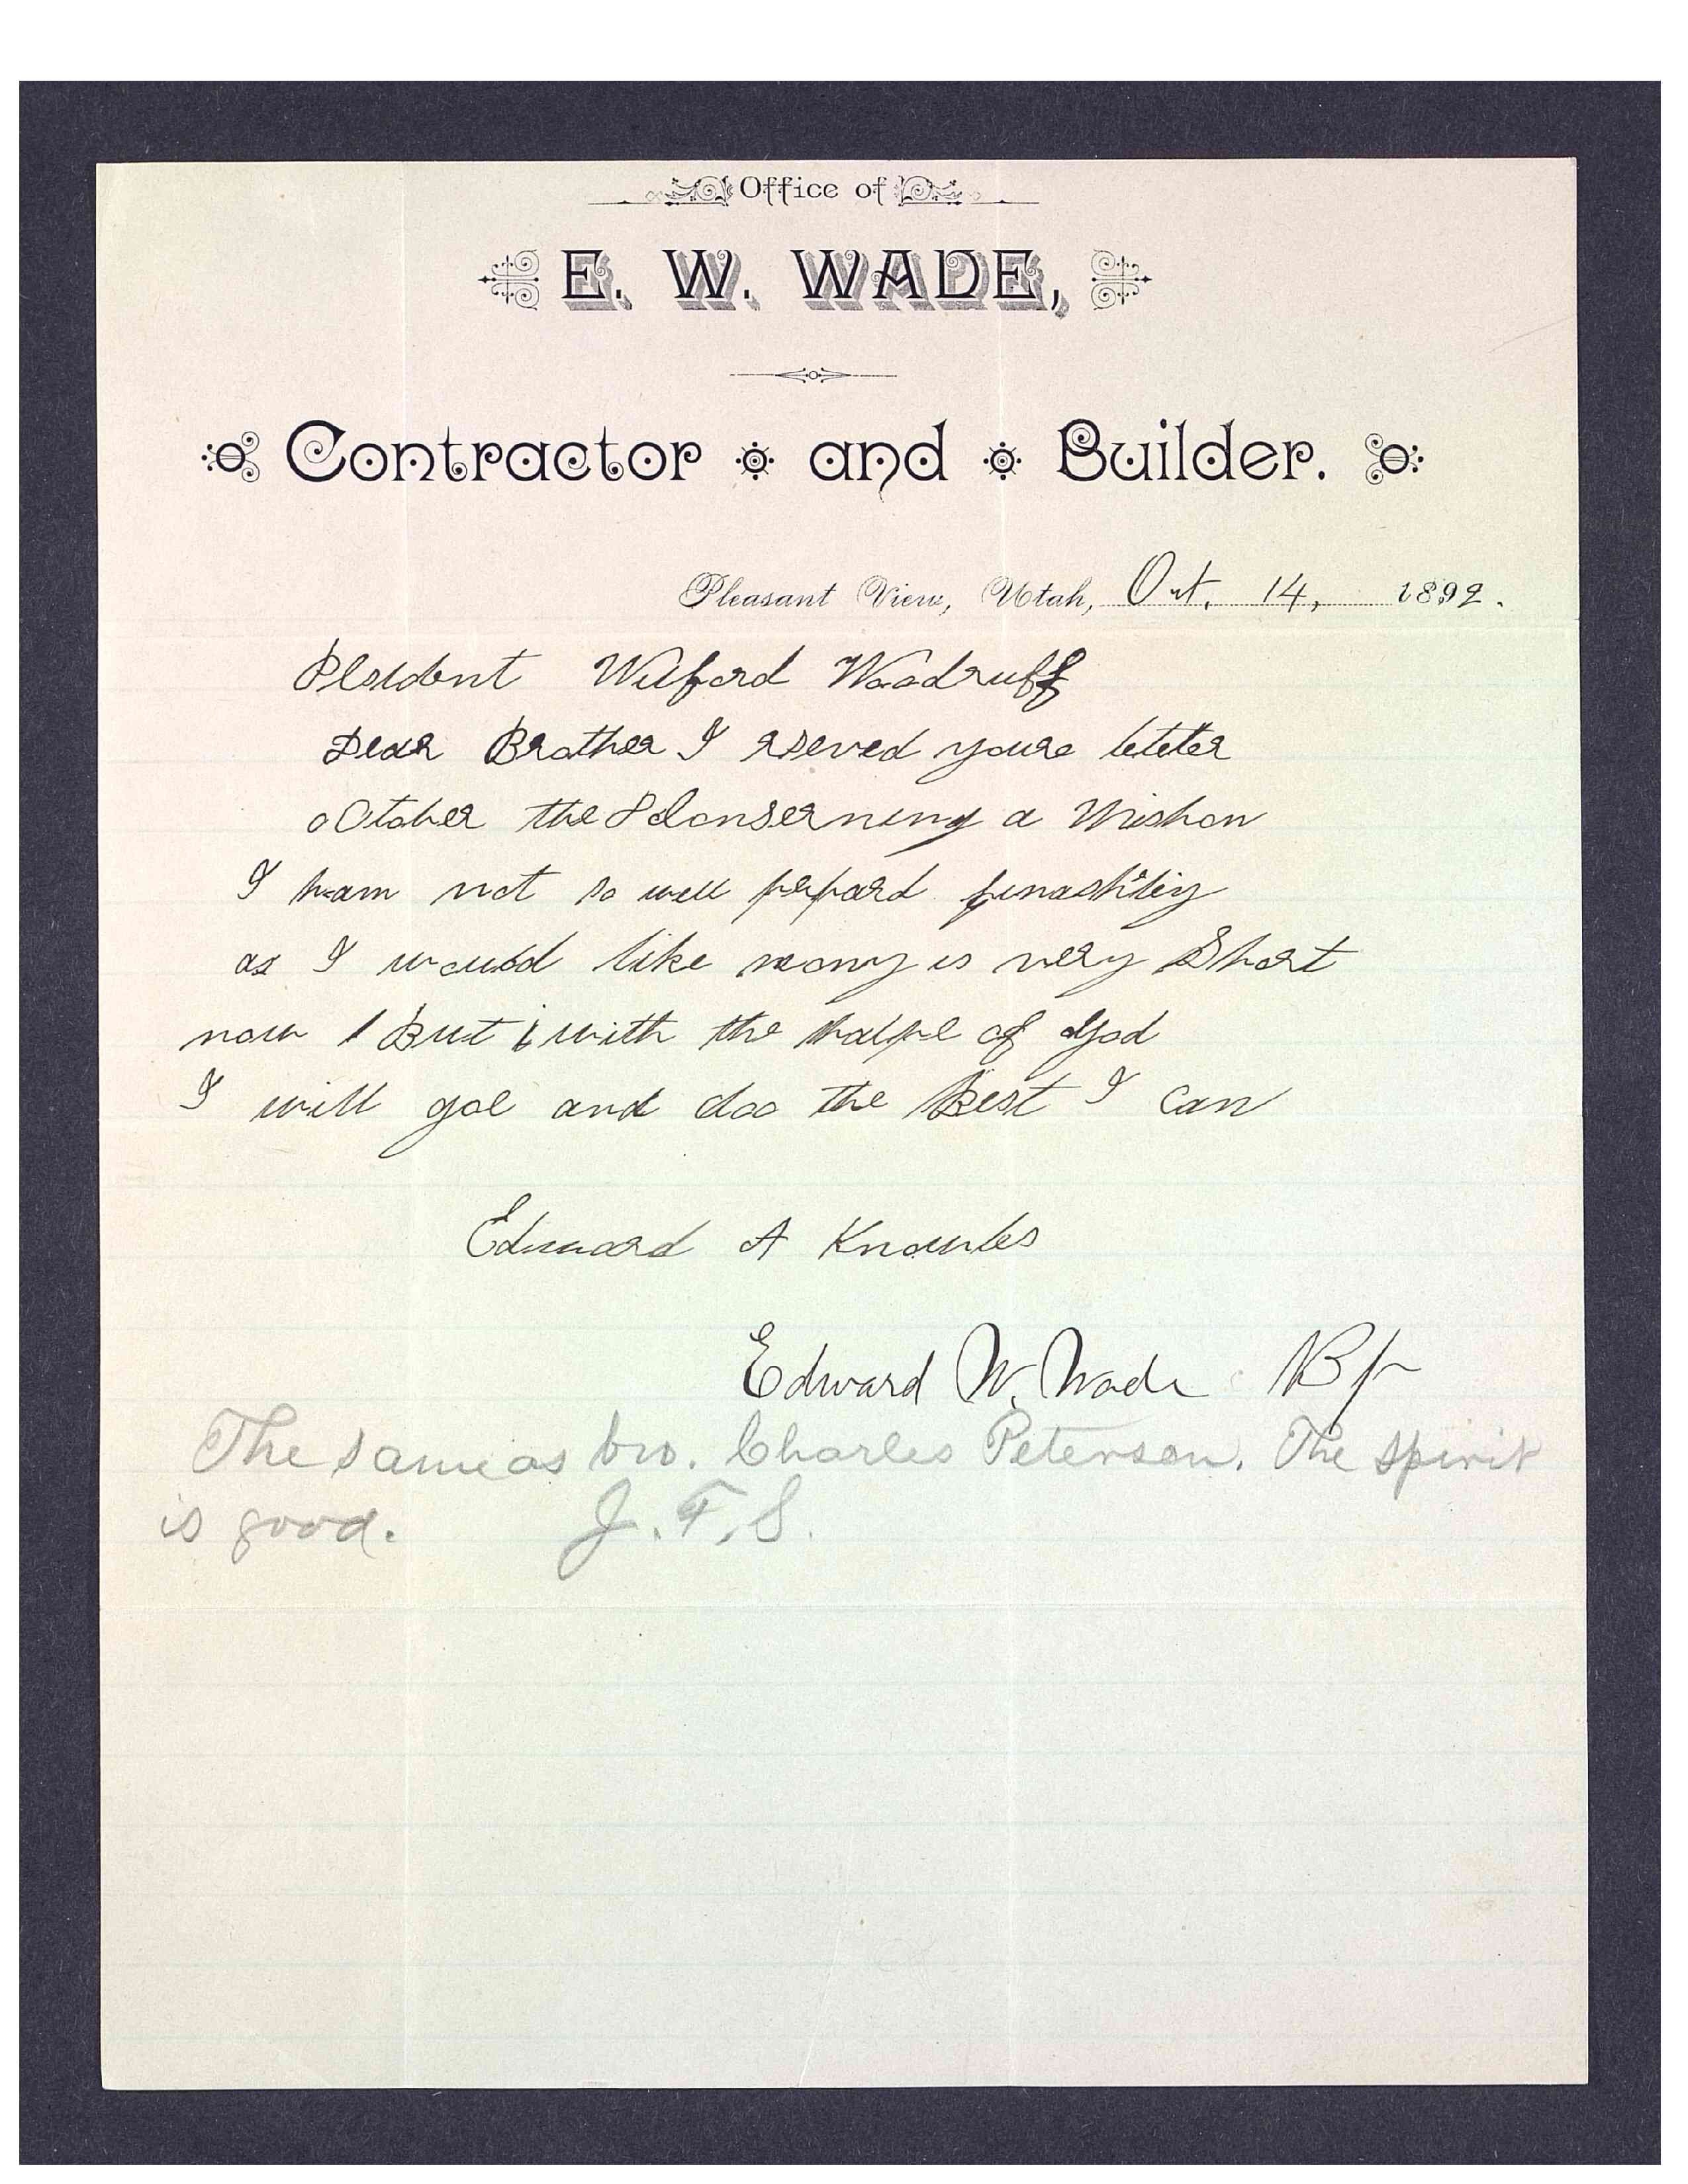 Office of
E. W. WADE,
Contractor and Builder.
Pleasant View, Utah, Oct. 14, 1892.
Plesident Wilford Woodruff
Dear Brother I reseved youre leteter
oOtober the 8 Conserning a Mishon
I ham not so well prepard finashiley
as I would like mony is very Short
now But with the halpe of God
I will goe and doo the Best I can
Edward A Knowles
Edward W. Wade Bp
The same as bro. Charles Peterson. The spirit
is good. J. F. S.